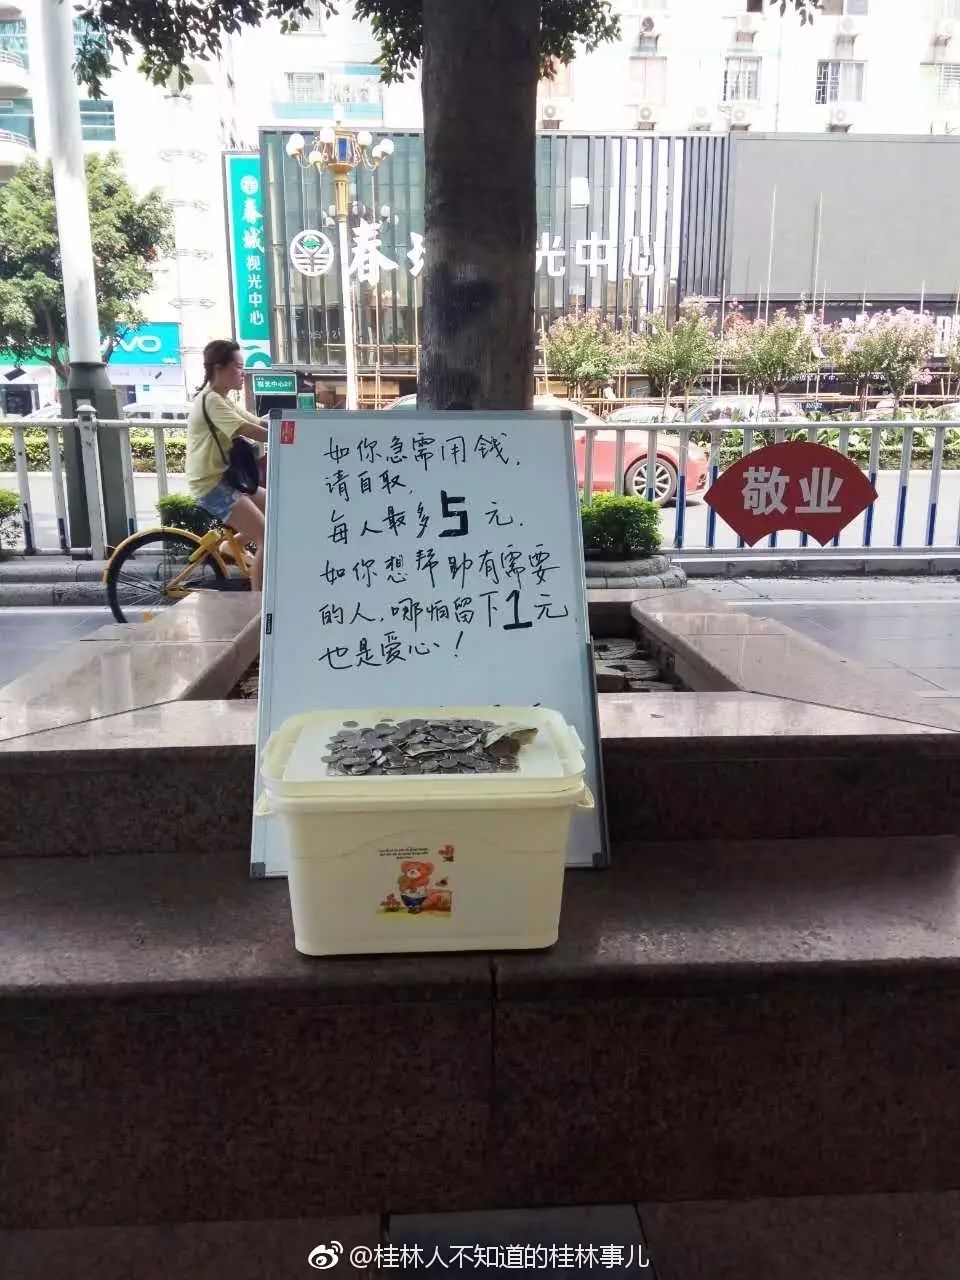 春城视光中心
春 光中心
vivo
视光中心2F
如你急需用钱，
请自取，
每人最多5元．
如你想帮助有需要
的人，哪怕留下1元
也是爱心！
敬业
@桂林人不知道的桂林事儿